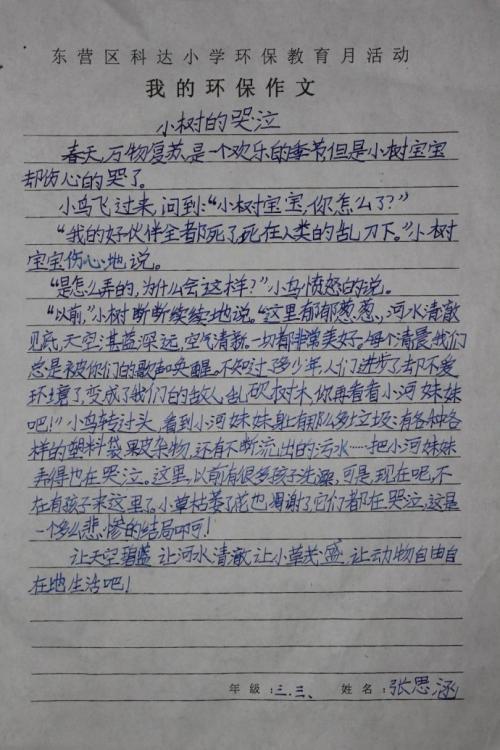 东营区科达小学环保教育月活动
我的环保作文
小树的哭泣
春天,万物复苏,是一个欢乐的季节,但是小树宝宝
却伤心的哭了。
小鸟飞过来,问到:“小树宝宝,你怎么了?”
“我的好伙伴全都死了,死在人类的乱刀下。”小树
宝宝伤心地说。
“是怎么弄的,为什么会这样?”小鸟愤怒的说。
“以前,”小树断断续续地说。“这里郁郁葱葱、河水清澈
见底,天空湛蓝深远,空气清新。一切都非常美好。每个清晨我们
总是被你们的歌声唤醒。不知过了多少年,人们进步了却不爱
环境了,变成了我们的敌人,乱砍树木,你再看看小河妹妹
吧!”小鸟转过头,看到小河妹妹身上有那么多垃圾:有各种各
样的塑料袋果皮杂物,还有不断流出的污水……把小河妹妹
弄得也在哭泣。这里,以前有很多孩子洗澡,可是,现在呢,不
在有孩子来这里了。小草枯萎了花也凋谢了它们都在哭泣,这是
一个多么悲惨的结局啊!
让天空碧蓝,让河水清澈,让小草茂盛,让动物自由自
在地生活吧!
年级:三.三、 姓名:张思涵